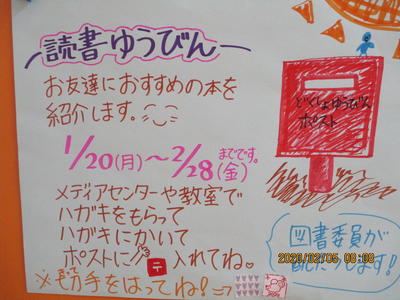 読書ゆうびん
お友達におすすめの本を
紹介します。
1/20(月)～2/28(金)までです。
メディアセンターや教室で
ハガキをもらって
ハガキにかいて
ポストに〒入れてね。
※切手をはってね!
どくしょゆうびん
ポスト
図書委員が
配たつします!
2020/02/05 08:08